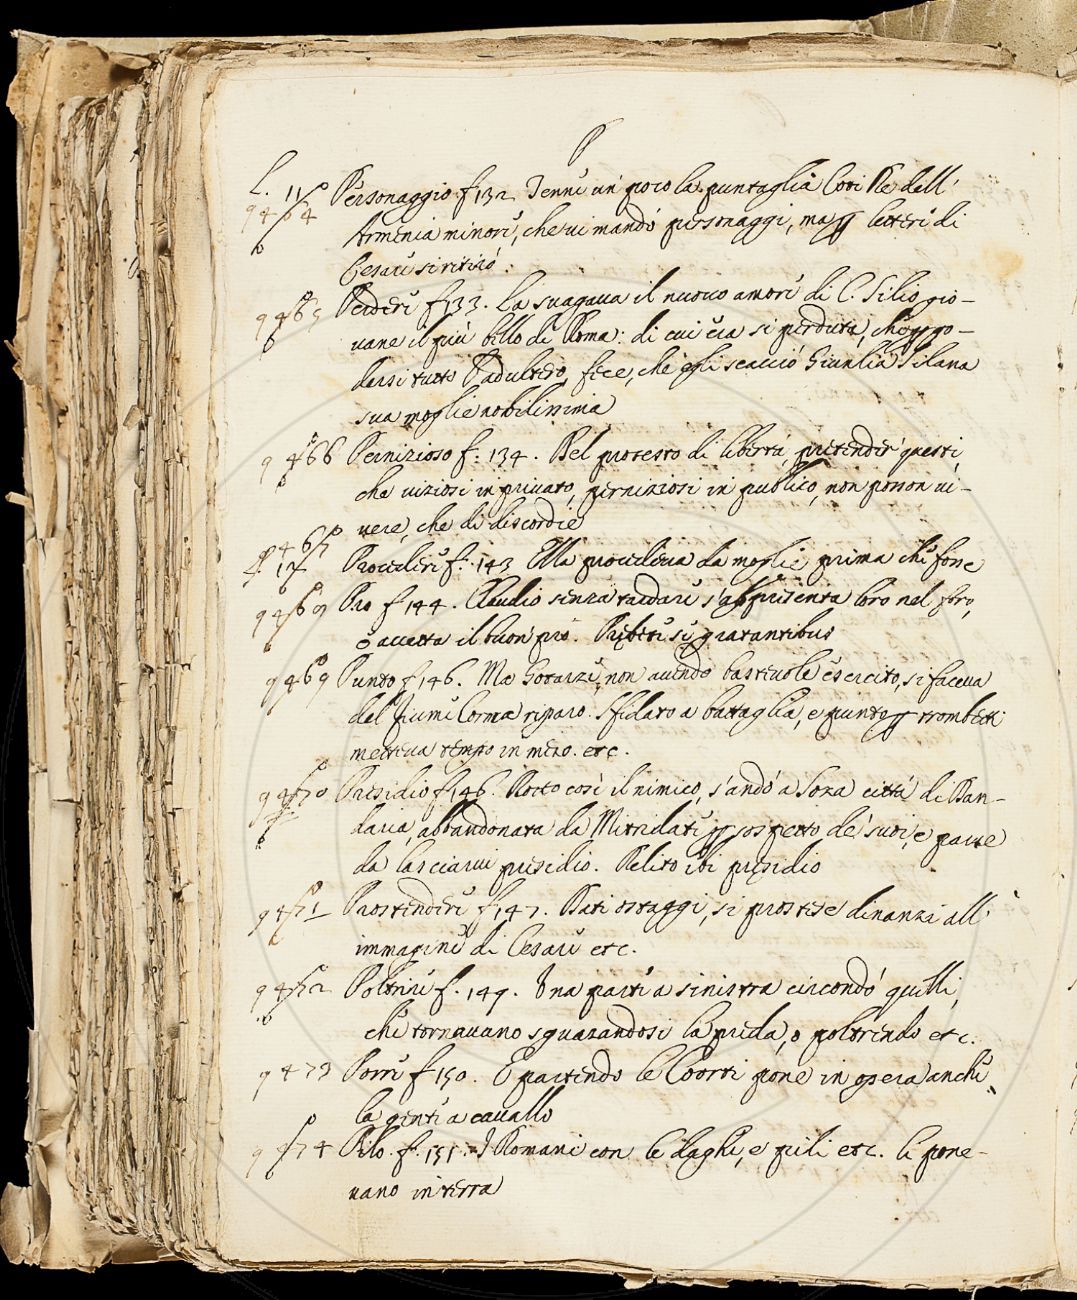 P
L. 11
9464 Personaggio f 132 Tenne un poco la puntaglia Coti Re dell'
Armenia minore, che vi mandò personaggi, ma p lettere di
Cesare si ritirò.
9465 Perdere f 133. La svagava il nuovo amore di C. Silio gio-
vane il più bello di Roma: di cui era sì perduta, che p go-
dersi tutto l'adultero, fece, che gli scacciò Giunia Silana
sua moglie nobilissima
9466 Pernizioso f. 134. Bel pretesto di libertà, pretender' questi,
che viziosi in privato, perniziosi in publico, non posson vi-
vere, che di discordie
9467 Procedere f. 143 Ella procedeva da moglie prima che fosse
Pro f 144. Claudio senza tardare s'appresenta loro nel foro,
e accetta il buon pro.
9469 Punto f 146. Ma Gotarze, non avendo bastevole esercito, si faceva
del fiume Corma riparo. Sfidato a battaglia, e punto p trombetti
metteva tempo in mezo. etc.
9470 Presidio f 146. Rotto così il nimico, s'andò a Soza città di Dan-
daria, abbandonata da Mitridate p sospetto de' suoi, e parve
da lasciarvi presidio. Relito ibi presidio
9471 Prostendere f 147. Dati ostaggi, si prostese dinanzi all'
immagine di Cesare etc.
9472 Poltrire f. 149. Una parte a sinistra circondò quelli,
che tornavano sguazandosi la preda, o poltrendo etc.
9473 Porre f 150. E partendo le Coorti pone in opera anche
la gente a cavallo
9474 Pilo. f. 151. I Romani con le daghe, e pili etc. li pone-
vano in terra